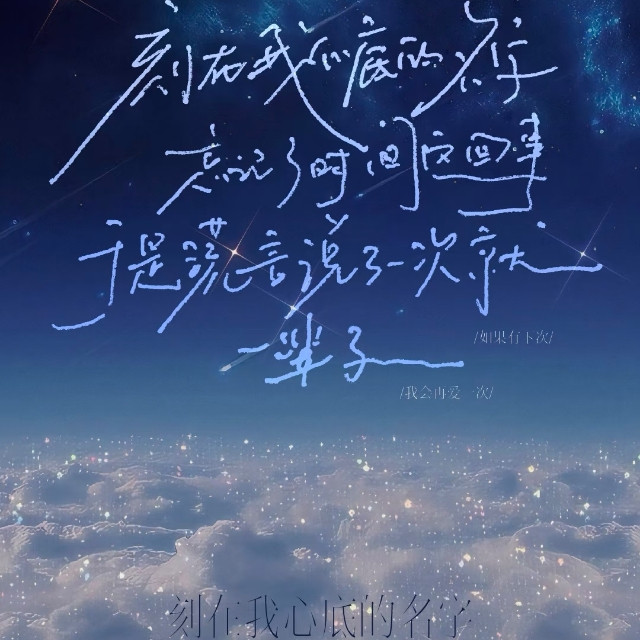 刻在我心底的名字
忘记了时间这回事
于是谎言说了一次就
一辈子
/如果有下次/
/我会再爱一次/
刻在我心底的名字